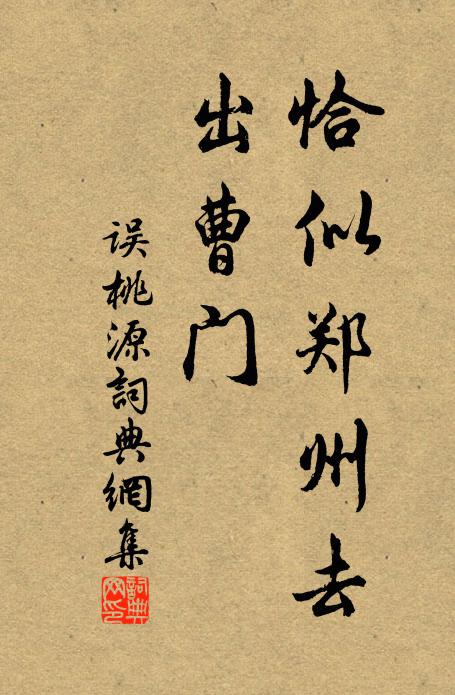 恰似郑州去
出曹门
误桃源詞典網集
詞典
网印